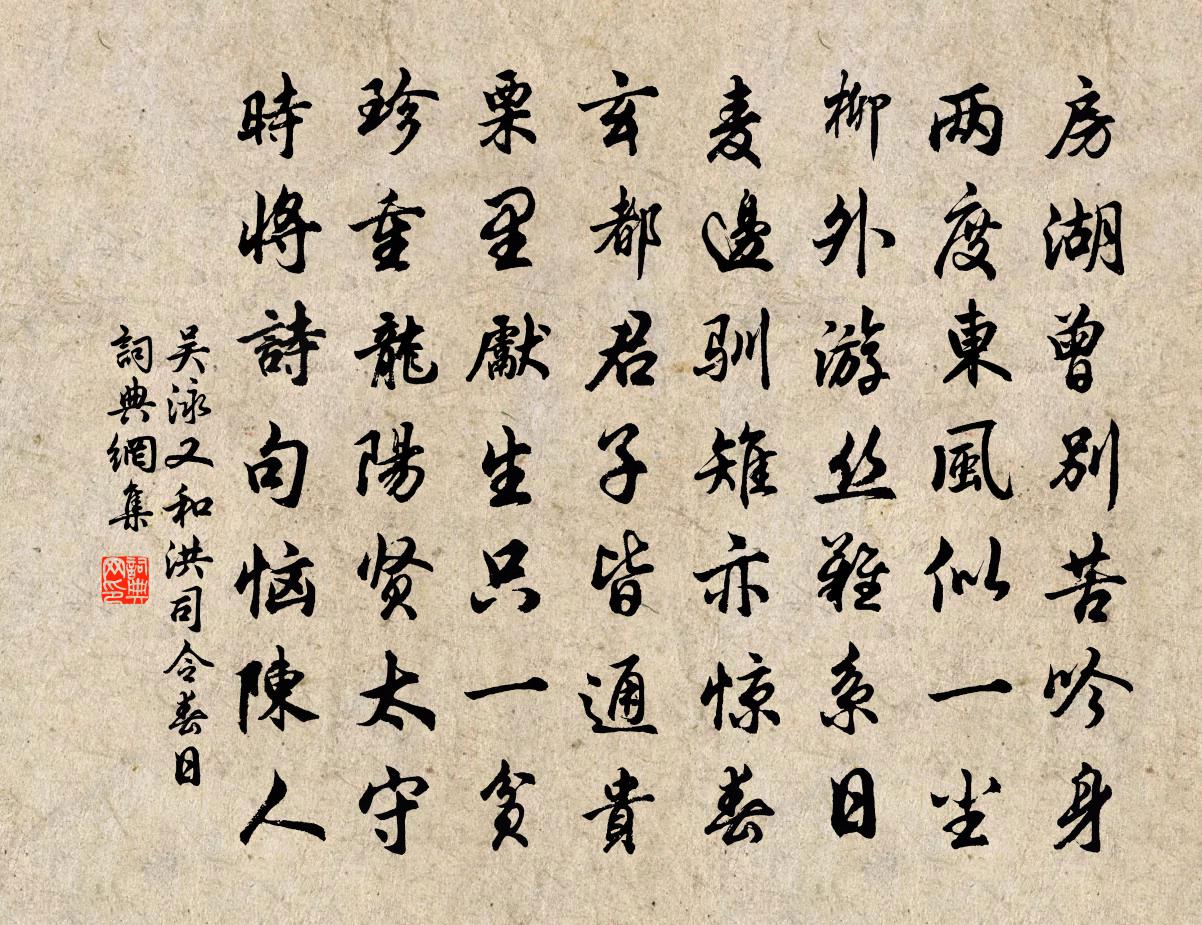 房湖曾别苦吟身
两度東風似一尘
柳外游丝難系日
麦邊馴雉亦惊春
玄都君子皆通貴
栗里獻生只一贫
珍重龍陽贤太守
時將詩句恼陳人
吴泳又和洪司令春日
詞典網集
詞典网印